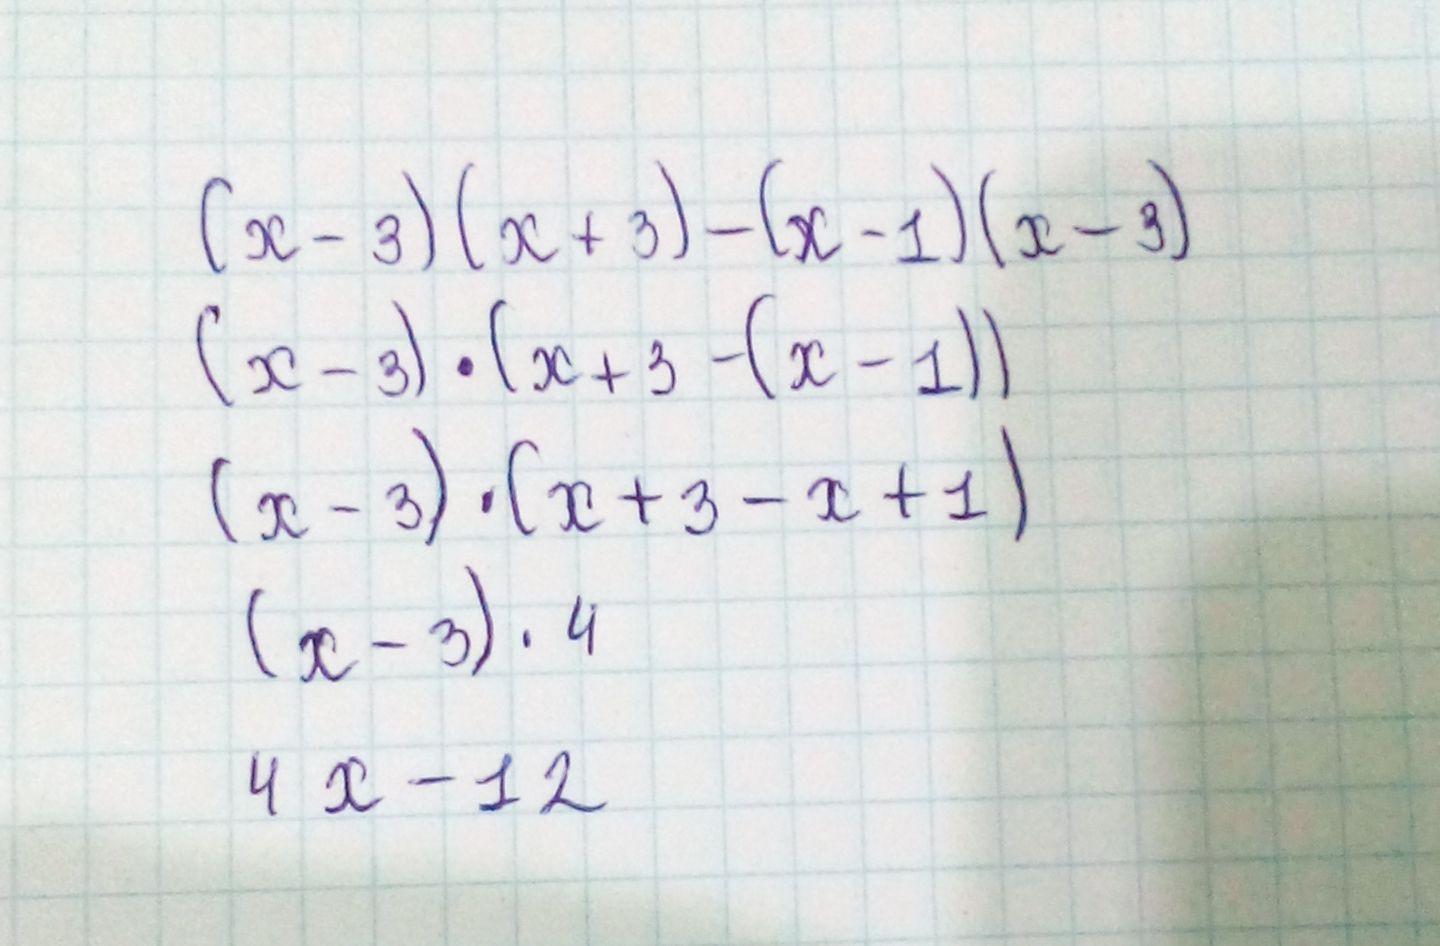 (x-3)(x+3)-(x-1)(x-3)
(x-3)·(x+3-(x-1))
(x-3)·(x+3-x+1)
(x-3)·4
4x-12